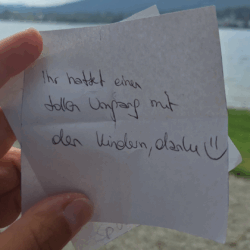 Ihr hattet einen
tollen Umgang mit
den Kindern, danke